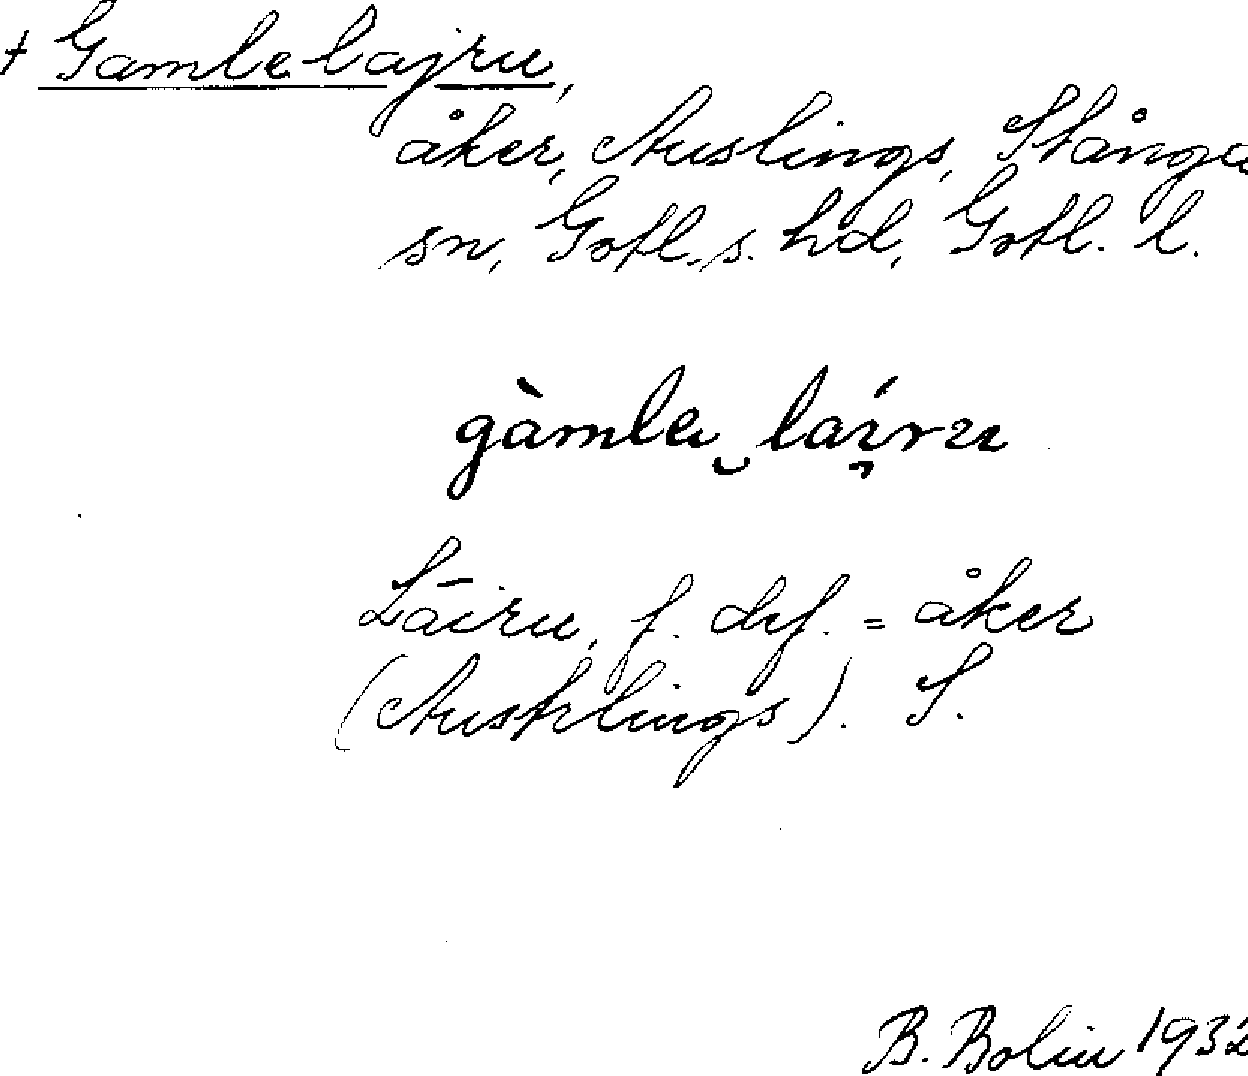 † Gamle lajru,
åker, Auslings, Stånga
sn, Gotl. s. hd, Gotl. l.
gàmle lái̯ru
Lāiru, f. def. = åker
(Ausklings). S.
B. Bolin 1932